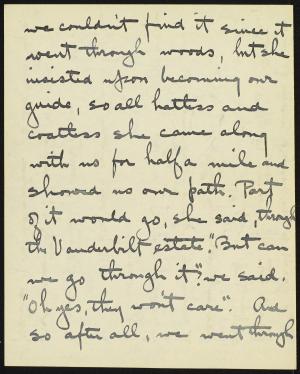 we couldn't find it since it
went through woods, but she
insisted upon becoming our
guide, so all hatless and
coatless she came along
with us for half a mile and
showed us our path. Part
of it would go, she said, through
the Vanderbilt estate. "But can
we go through it"? we said.
"Oh yes, they won't care". And
so after all, we went through